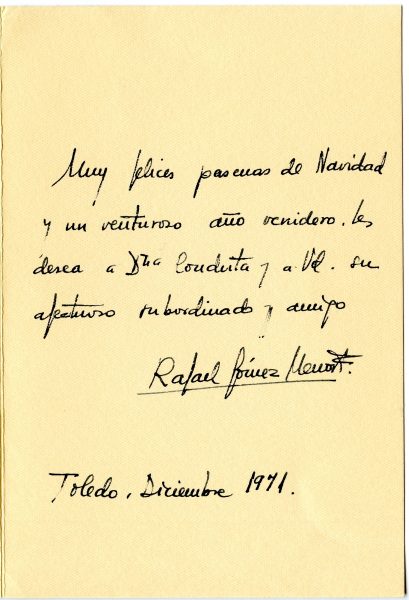 Muy felices pascuas de Navidad
y un venturoso año venidero. les
desea a Dña Conchita y a Vd. su
afectuoso subordinado y amigo
Rafael Gómez Menor.
Toledo, Diciembre 1971.